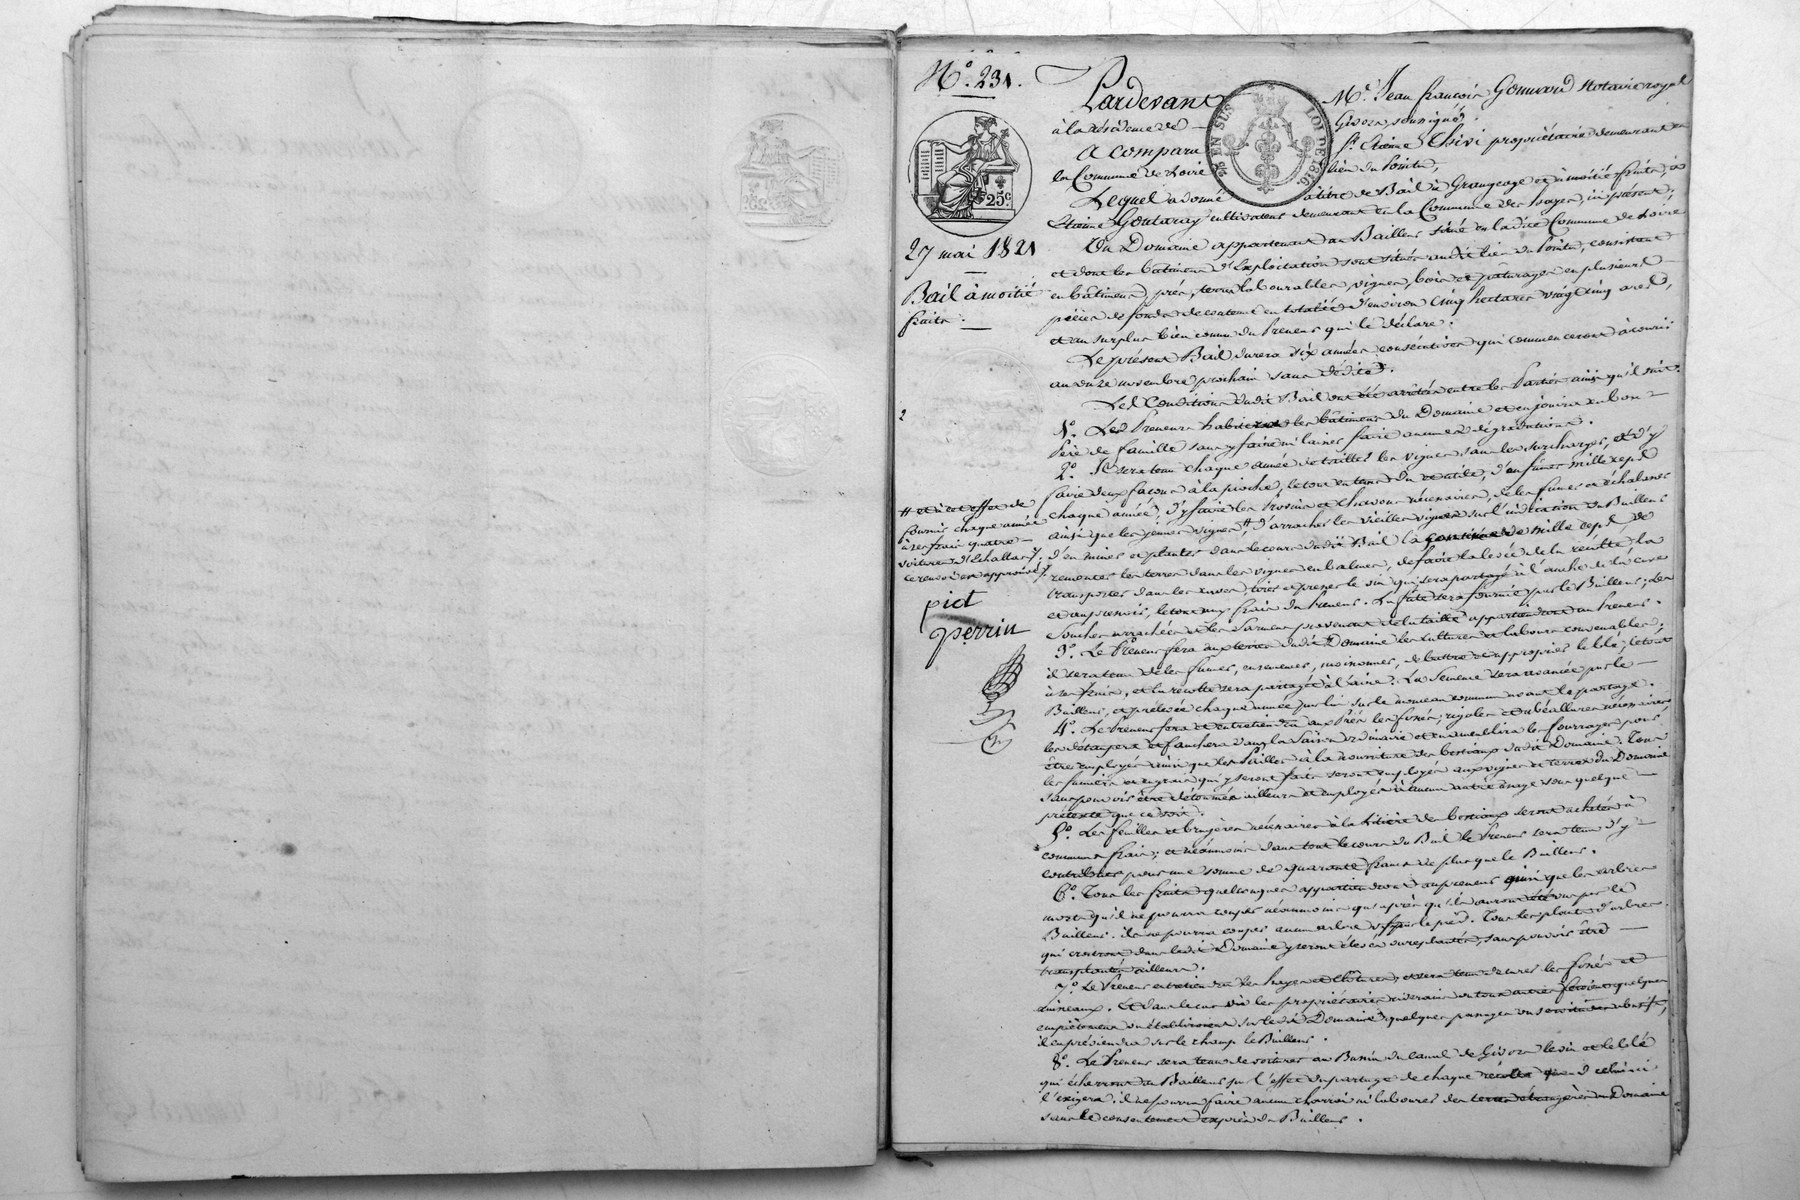 N.º 231.
Pardevant Mᵉ. Jean françois Gonnard Notaire royal
à la résidence de Givors, soussigné.
EN SUS
LOI DE 1816.
25ᶜ.
A comparu Sʳ. Etienne Chivi propriétaire demeurant en
la Commune de Loire lieu du Pointu,
Lequel a donné à titre de Bail à Grangeage et à moitié fruits, à
Etienne cultivateur demeurant en la Commune des hayes, ici présent;
27 mai 1821
Un Domaine appartenant au Bailleur situé en ladite Commune de Loire
et dont les bâtimens d'Exploitation sont situés audit lieu du Pointu, consistant
Bail à moitié
fruits.
en bâtimens, prés, terres labourables, vignes, bois et pâturages en plusieurs
pièces de fonds de contenue en totalité d'environ Cinq hectares vingt cinq ares,
et au surplus bien connu du Preneur qui le déclare.
Le présent Bail durera six années consécutives qui commenceront à courir
au onze novembre prochain sans dédite.
Les Conditions dudit Bail ont été arrêtées entre les Parties ainsi qu'il suit.
2
1º. Le Preneur habitera les bâtimens du Domaine et en jouira en bon
Père de famille sans y faire ni laisser faire aucunes dégradations.
2º. Il sera tenu chaque année de tailler les vignes, sans les surcharger, et d'y
faire deux façons à la pioche, le tout en tems dû et utile, d'en fumer mille ceps
chaque année, d'y faire les Provins et chavons nécessaires, de les fumer et échalasser
ainsi que les jeunes vignes, # d'arracher les vieilles vignes sur l'indication du Bailleur
# et à cet effet de
fournir chaque année
à ses frais quatre
voitures d'Echallats,
ce renvoi est approuvé.
d'en miner et planter dans le cours dudit Bail la de mille ceps, de
remonter les terres dans les vignes en balmes, de faire la levée de la récolte, la
transporter dans les cuves, tirer et presser le vin qui sera partagé à l'anche de la cuve
et au pressoir, le tout aux frais du Preneur. La futte sera fournie par le Bailleur; les
Souches arrachées et les Sarmens provenant de la taille appartiendront au Preneur.
pict
perrin
3º. Le Preneur fera aux terres dudit Domaine les cultures et labours convenables;
il sera tenu de les fumer, ensemencer, moissonner, de battre et approprier le blé, le tout
à ses frais, et la récolte sera partagée à l'aire. La Semence sera avancée par le
Bailleur, et prélevée chaque année par lui sur le monceau commun avant le partage.
4º. Le Preneur fera et entretiendra aux Prés les fossés, rigoles et abéallures nécessaires
les étaupera et fauchera dans la Saison ordinaire et en ameublira les fourrages pour
être employés ainsi que les Pailles à la nourriture des bestiaux dudit Domaine. Tous
les fumiers et engrais qui y seront faits seront employés aux vignes et terres du Domaine
sans pouvoir être détournés ailleurs et employés à aucun autre usage sous quelque
prétexte que ce soit.
5º. Les feuilles et bruyères nécessaires à la Litière des bestiaux seront achetées à
communs frais; et néanmoins dans tout le cours du Bail le Preneur sera tenu d'y
contribuer pour une somme de quarante francs de plus que le Bailleur.
6º. Tous les fruits quelconques appartiendront au preneur ainsi que les arbres
morts qu'il ne pourra couper néanmoins qu'après qu'ils auront été vus par le
Bailleur. il ne pourra couper aucun arbre vif par le pied. Tous les plants d'arbres
qui croîtront dans ledit Domaine y seront élevés ou replantés, sans pouvoir être
transplantés ailleurs.
7º. Le Preneur entretiendra les hayes et clôtures, et sera tenu de curer les fossés et
ruisseaux. Et dans le cas où les propriétaires riverains ou tous autres feroient quelques
empiètemens ou établiroient sur ledit Domaine quelques passages ou servitudes abusifs,
il en préviendra sur le champ le Bailleur.
8º. Le Preneur sera tenu de voiturer au Bassin du canal de Givors le vin et le blé
qui écherront au Bailleur par l'effet du partage de chaque récolte quand celui-ci
l'exigera. il ne pourra faire aucun charroi ni labourer des terres étrangères au Domaine
sans le consentement exprès du Bailleur.